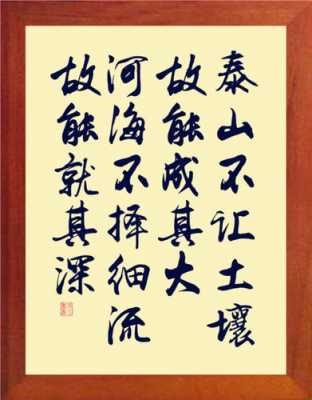 泰山不让土壤
故能成其大
河海不择细流
故能就其深